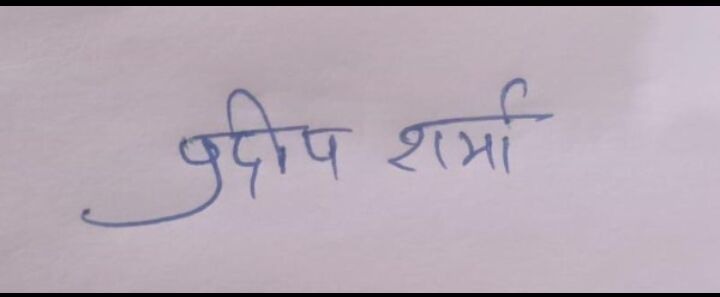 प्रदीप शर्मा